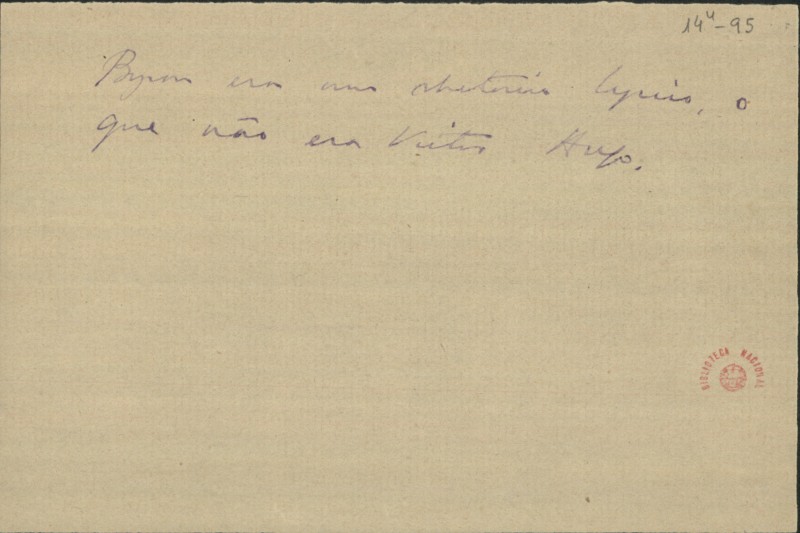 14⁴-95
Byron era um rhetorico lyrico, o
que não era Victor Hugo.
BIBLIOTECA NACIONAL